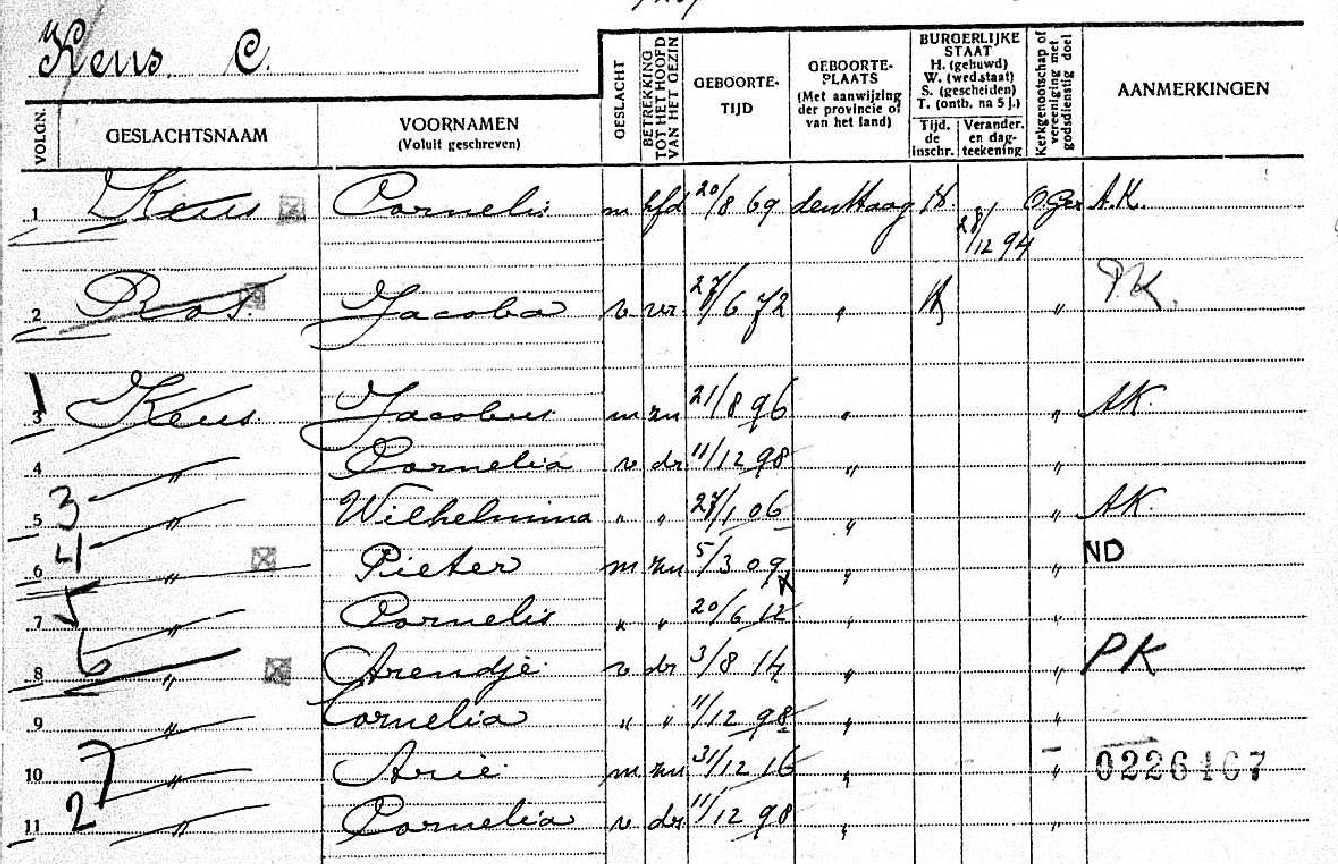 Keus. C.
VOLGN. GESLACHTSNAAM VOORNAMEN (Voluit geschreven) GESLACHT BETREKKING TOT HET HOOFD VAN HET GEZIN GEBOORTE-TIJD GEBOORTE-PLAATS (Met aanwijzing der provincie of van het land) BURGERLIJKE STAAT H. (gehuwd) W. (wed.staat) S. (gescheiden) T. (ontb. na 5 j.) Tijd. de inschr. Verander. en dag-teekening Kerkgenootschap of vereeniging met godsdienstig doel AANMERKINGEN
1 Keus Cornelis m hfd 20/8 69 den Haag H. 28/12 94 A.K.
2 Ros. Jacoba v vr 27/6 72 " " PK.
1
3 Keus. Jacobus m zn 21/8 96 " " AK.
4 " Cornelia v dr 11/12 98 " "
3
5 " Wilhelmina " " 27/1 06 " " AK.
4
6 " Pieter m zn 5/3 09 " " ND
5
7 " Cornelis " " 20/6 12 " "
6
8 " Arendje v dr 3/8 14 " " PK
9 " Cornelia " " 11/12 98 " "
7
10 " Arie m zn 31/12 16 " " 0226167
2
11 " Cornelia v dr 11/12 98 " "